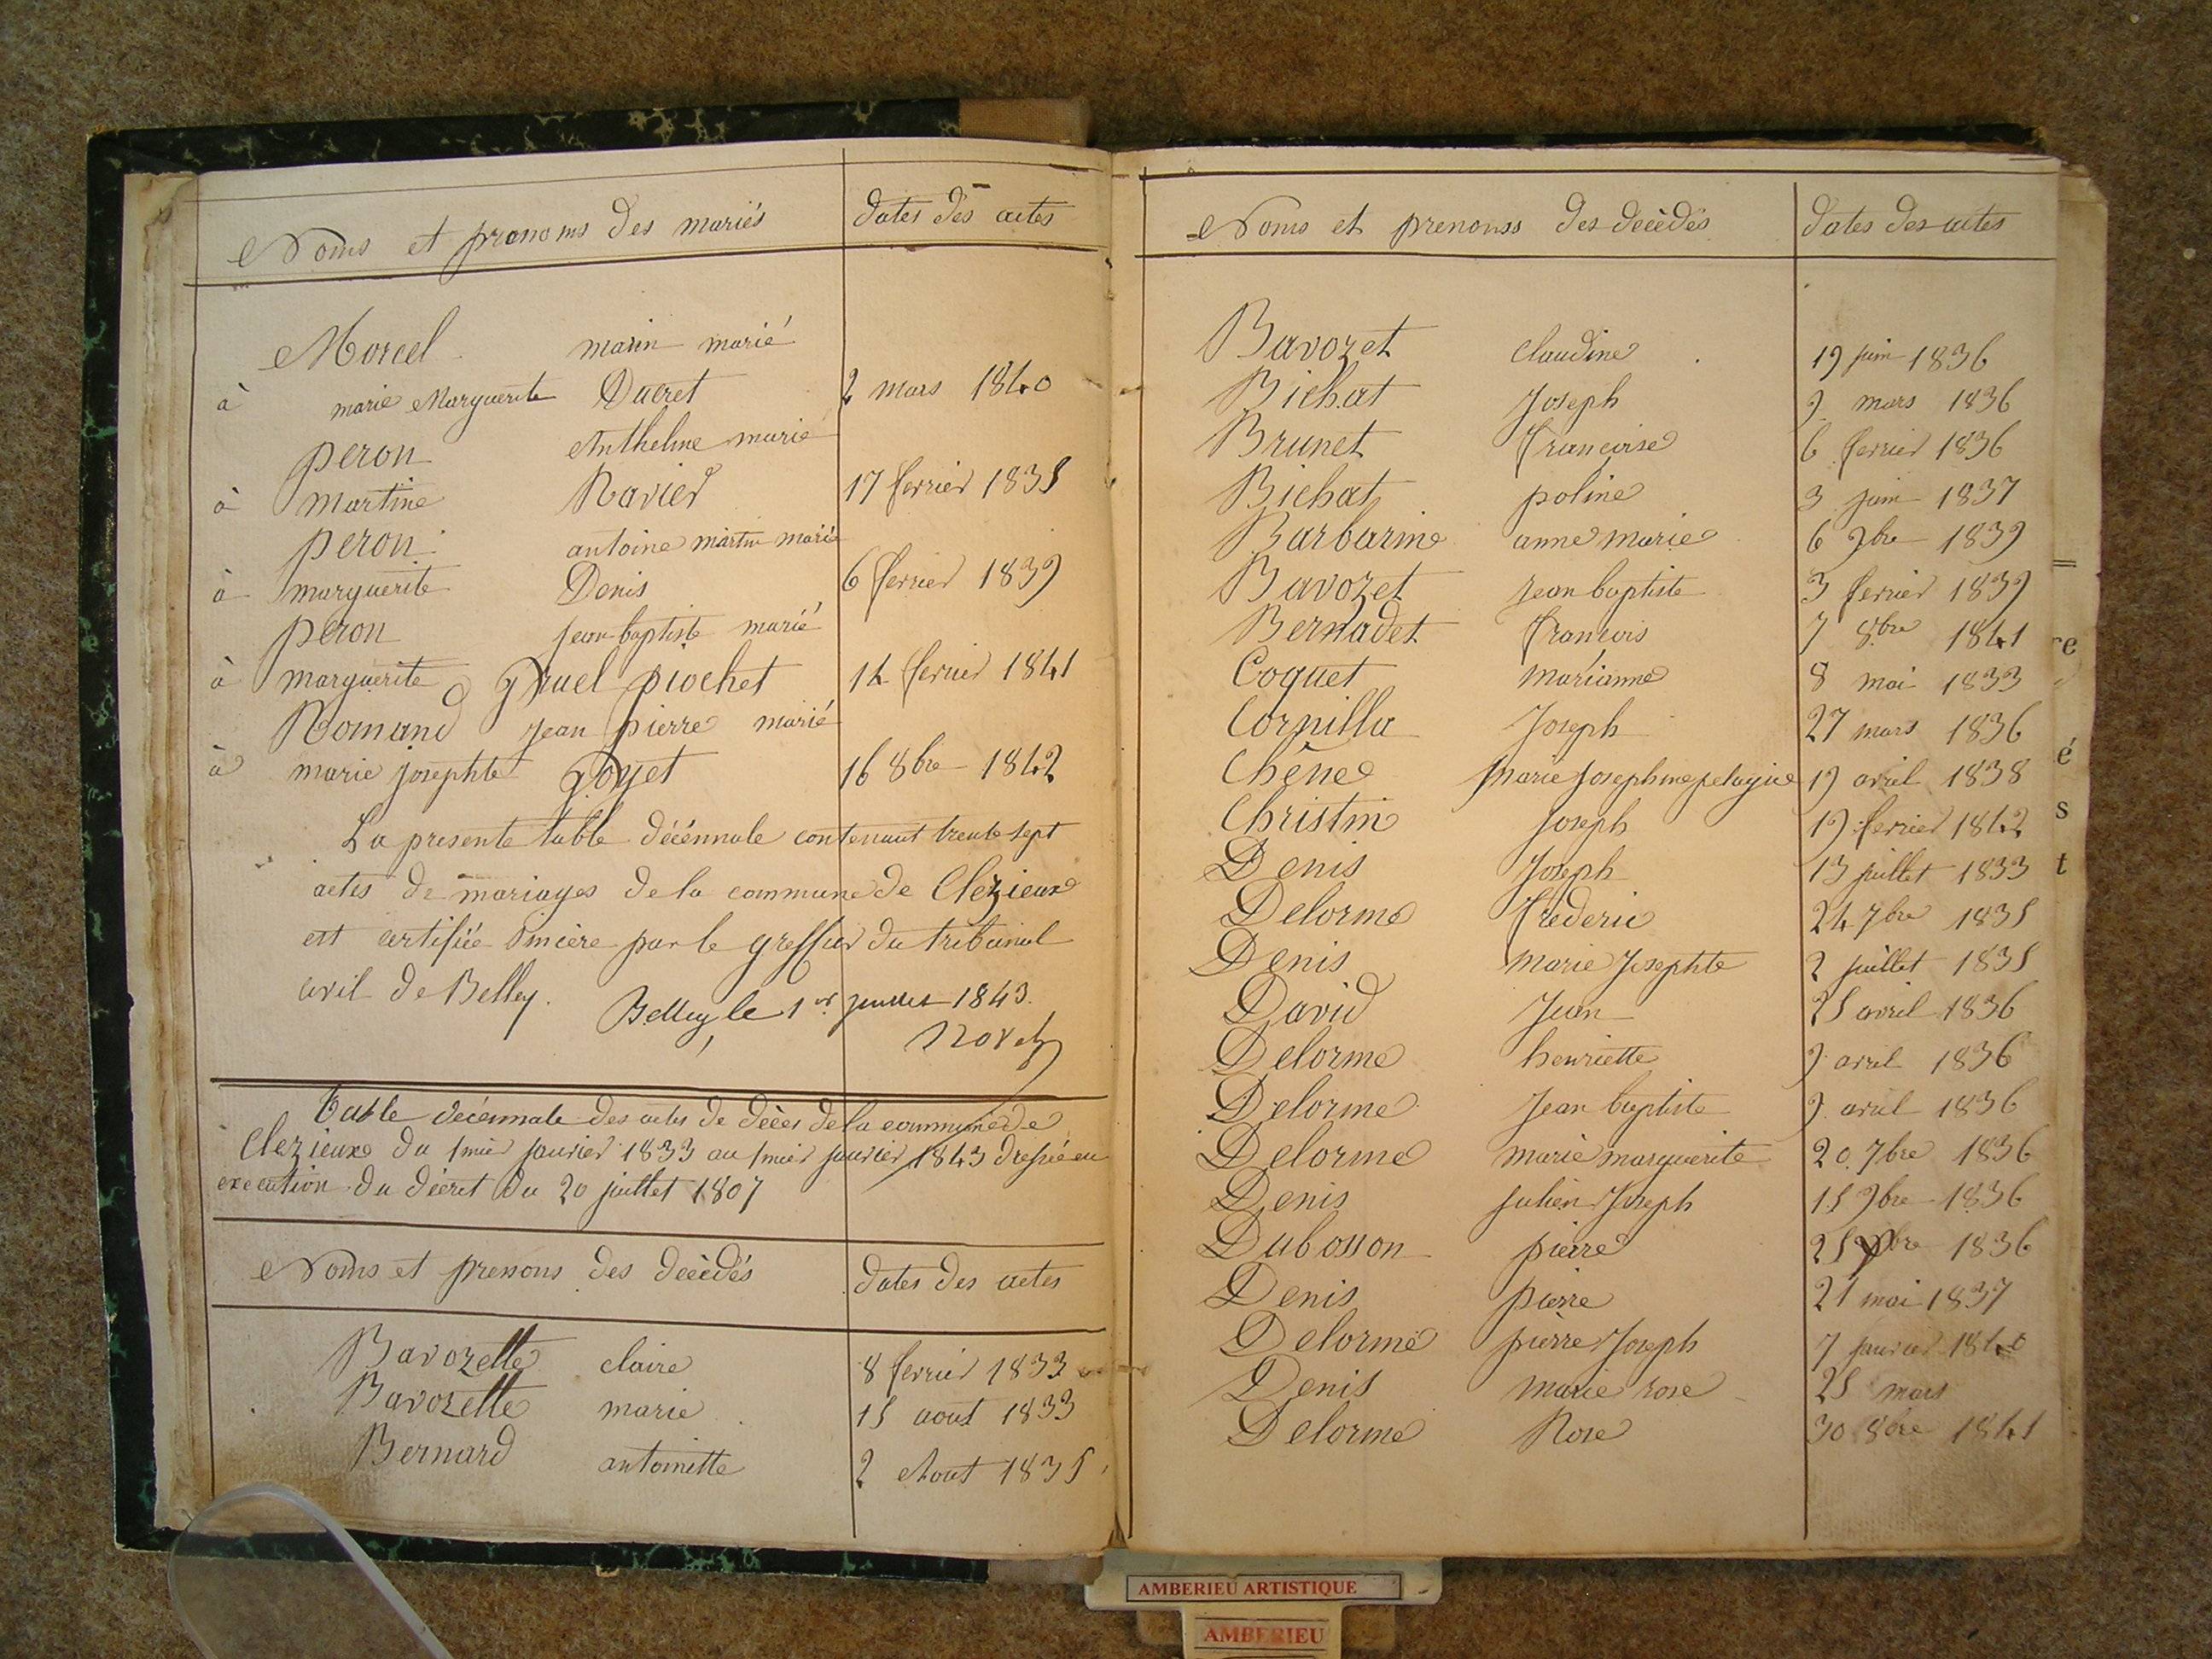 Noms et prenoms des mariés
dates des actes
Morcel marin marié
à marie Marguerite Ducret 2 mars 1840
peron Anthelme marié
à martine Ravier 17 fevrier 1835
peron antoine martin marié
à marguerite Denis 6 fevrier 1839
peron jean baptiste marié
à marguerite gruel piochet 14 fevrier 1841
Romand jean pierre marié
à marie josephte goyet 16 8bre 1842
La presente table décénnale contenant trente sept
actes de mariages de la commune de Cleyzieux
est certifiée sincère par le greffier du tribunal
civil de Belley.
Belley, le 1er juillet 1843.
Table decénnale des actes de décès de la commune de
Clezieux du 1mier janvier 1833 au 1mier janvier 1843 dressée en
execution du décret du 20 juillet 1807
Noms et prenons des décédés
dates des actes
Bavozette claire 8 fevrier 1833
Bavozette marie 15 aout 1833
Bernard antoinette 2 Aout 1835
Noms et prenoms des décédés
dates des actes
Bavozet claudine 19 juin 1836
Bichat Joseph 9 mars 1836
Brunet francoise 6 fevrier 1836
Bichat poline 3 juin 1837
Barbarine anne marie 6 9bre 1839
Bavozet jean baptiste 3 fevrier 1839
Bernadet francois 7 8bre 1841
Coquet marianne 8 mai 1833
Cornilla Joseph 27 mars 1836
Chêne marie josephine pelagie 19 avril 1838
Christin joseph 19 fevrier 1842
Denis Joseph 13 juillet 1833
Delorme frederic 24 7bre 1835
Denis marie Josephte 2 juillet 1835
David Jean 25 avril 1836
Delorme henriette 9 avril 1836
Delorme jean baptiste 9 avril 1836
Delorme marie marguerite 20 7bre 1836
Denis julien Joseph 15 9bre 1836
Dubosson pierre 25 bre 1836
Denis pierre 21 mai 1837
Delorme pierre Joseph 7 janvier 1840
Denis marie rose 25 mars
Delorme Rose 30 8bre 1841
re
é
s
t
AMBERIEU ARTISTIQUE
AMBERIEU